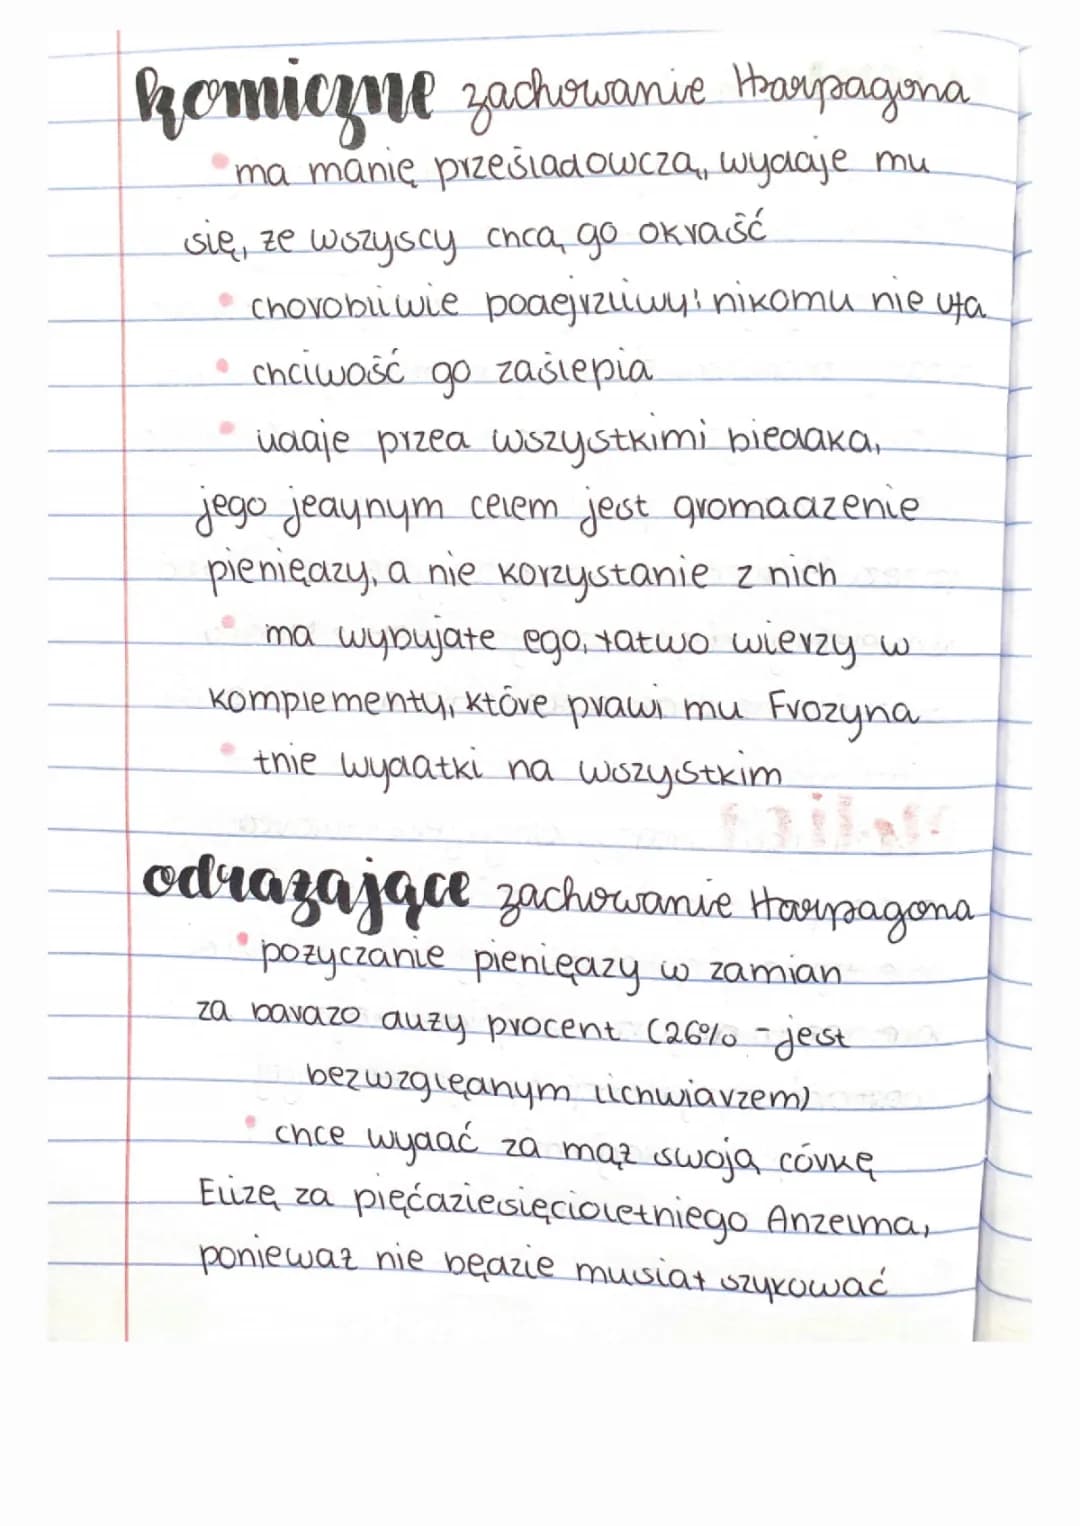 komiczne zachowanie Harpagona
• ma manię prześladowczą, wydaje mu
się, że wszyscy chcą go okraść
• chorobliwie podejrzliwy: nikomu nie ufa
• chciwość go zaślepia
• udaje przed wszystkimi biedaka,
jego jedynym celem jest gromadzenie
pieniędzy, a nie korzystanie z nich
• ma wybujałe ego, łatwo wierzy w
komplementy, które prawi mu Frozyna
• tnie wydatki na wszystkim
odrażające zachowanie Harpagona
• pożyczanie pieniędzy w zamian
za bardzo duży procent (26% - jest
bezwzględnym lichwiarzem)
• chce wydać za mąż swoją córkę
Elizę za pięćdziesięcioletniego Anzelma,
ponieważ nie będzie musiał szykować